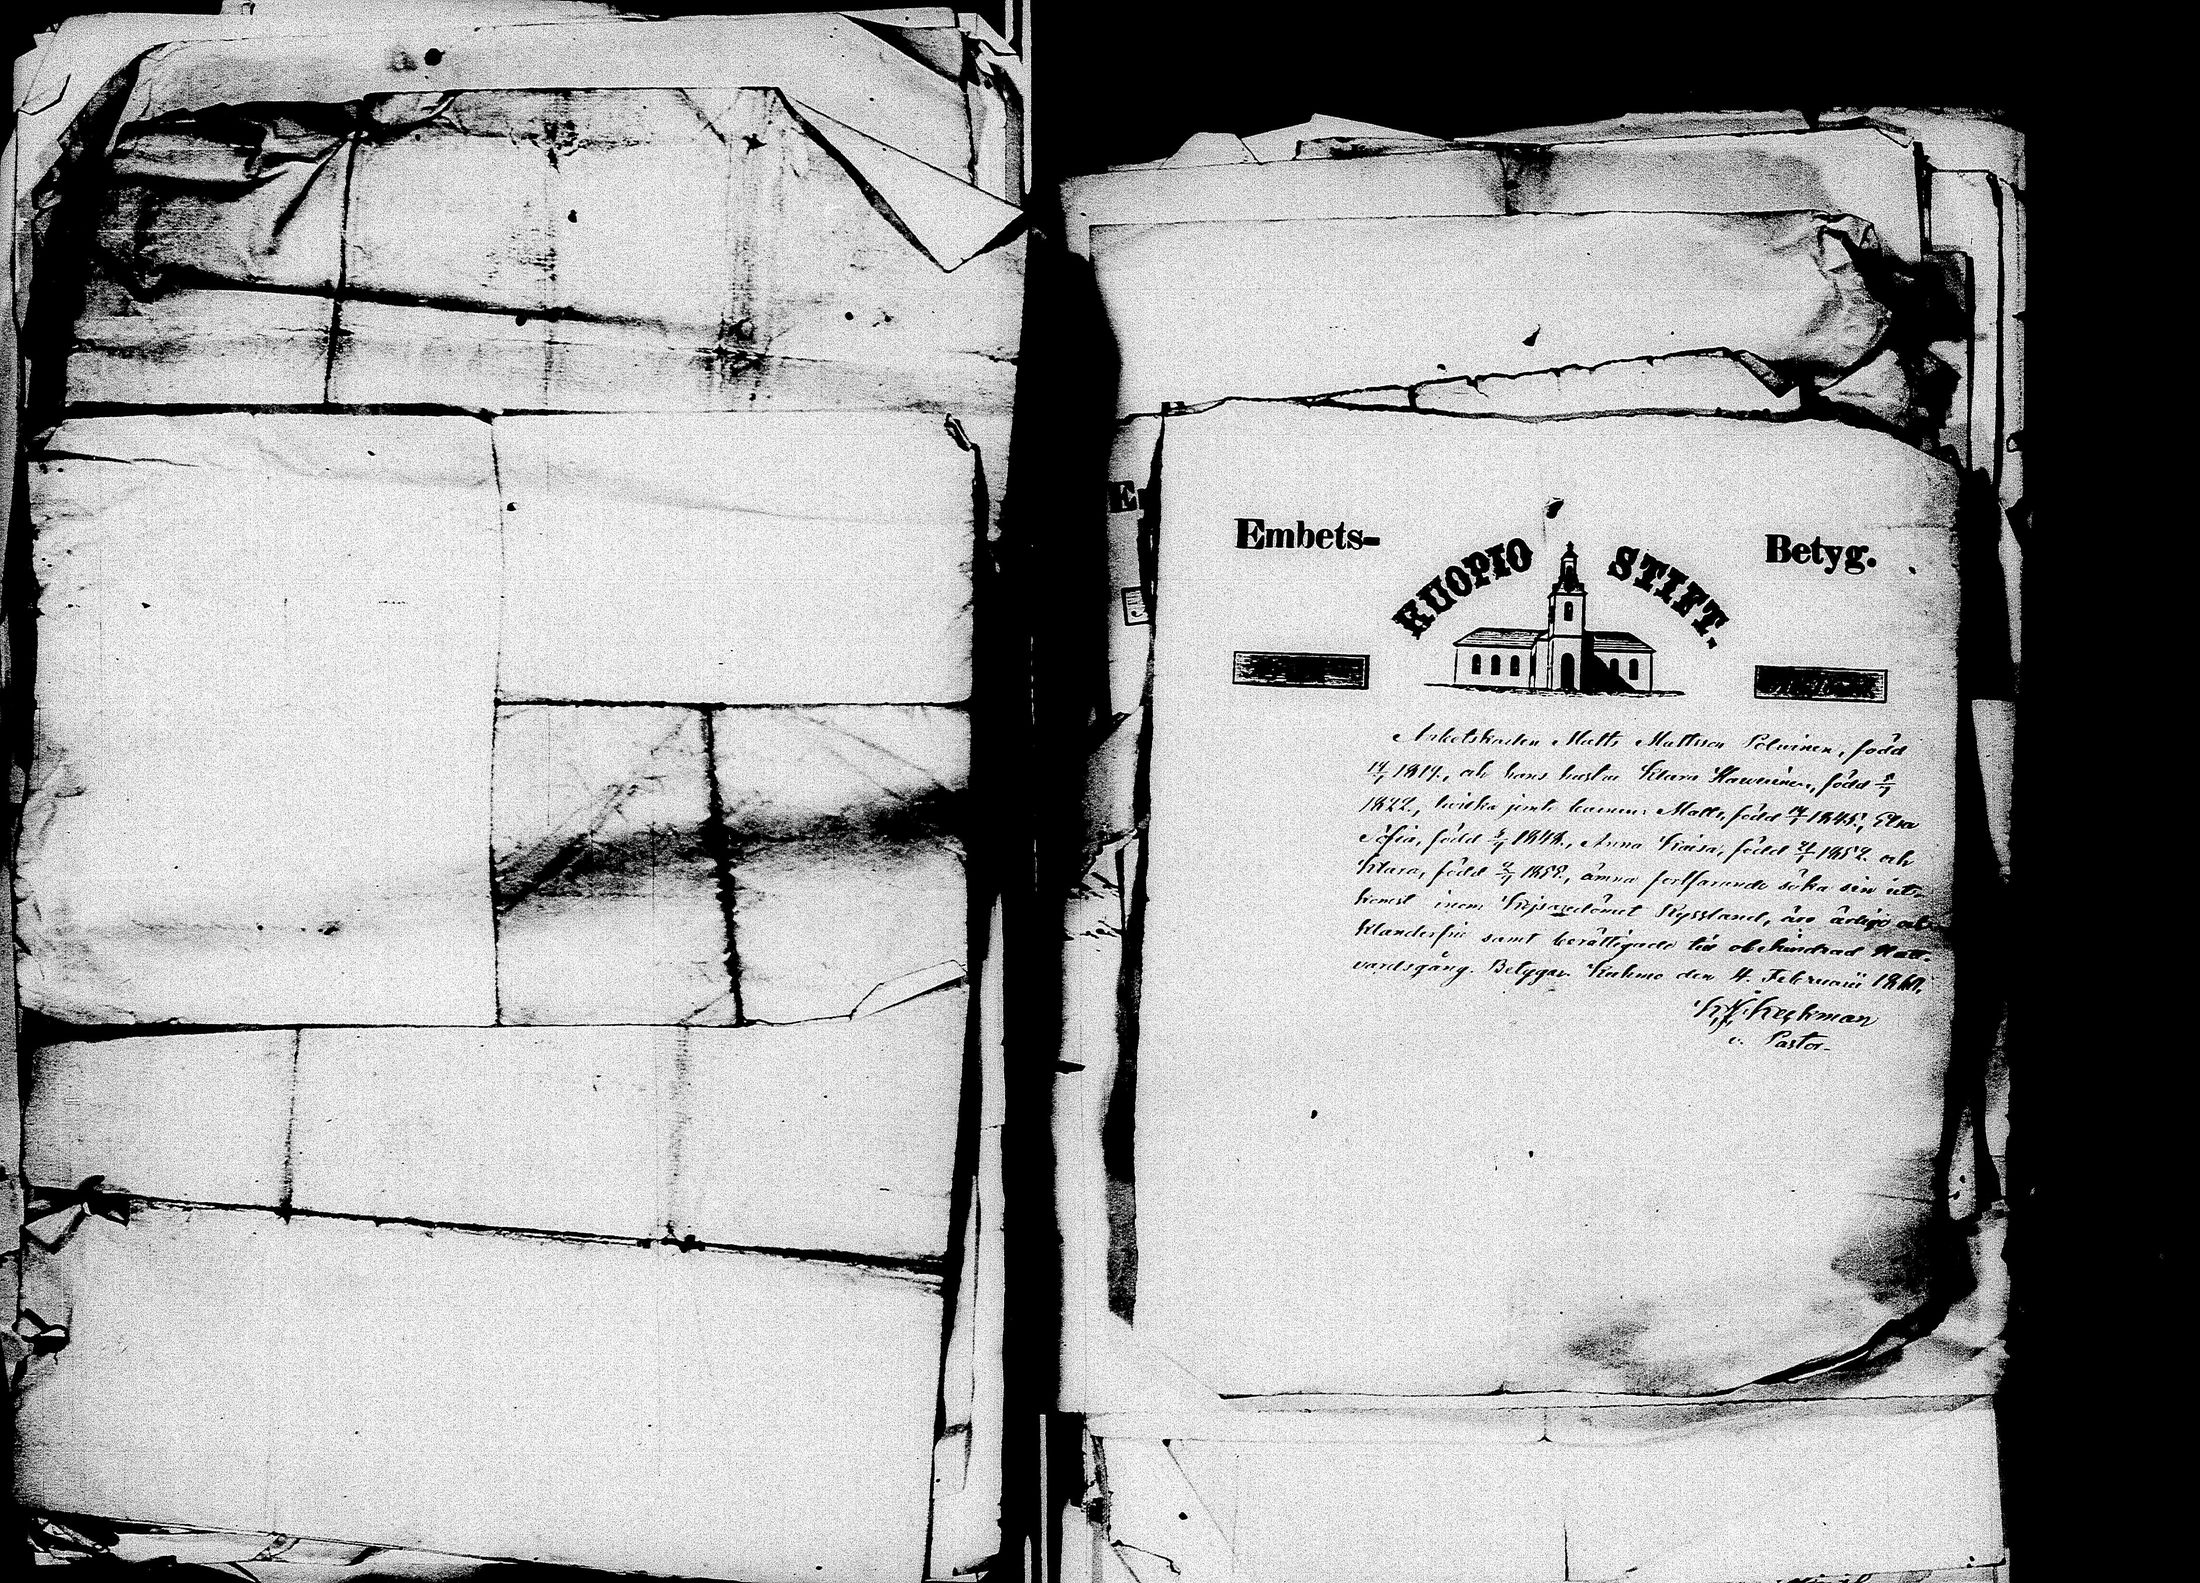 Embets-
KUOPIO STIFT.
Betyg.
Arbetskarlen Matts Mattsson Polvinen, född
1819., och hans hustru Klara Haverinen, född
1822., hvilka jemte barnen: Matts, född 1845., Elsa
Sofia, född 1848., Anna Kaisa, född 1852. och
Klara, född 1855., ämna fortfarande söka sin ut-
komst inom Kejsaredömet Ryssland, äro ärlige och
klanderfrie samt berättigade till obehindrad Natt-
vardsgång. Betygar. Kuhmo den 4. Februarii 1860.
Keckman
v. Pastor.